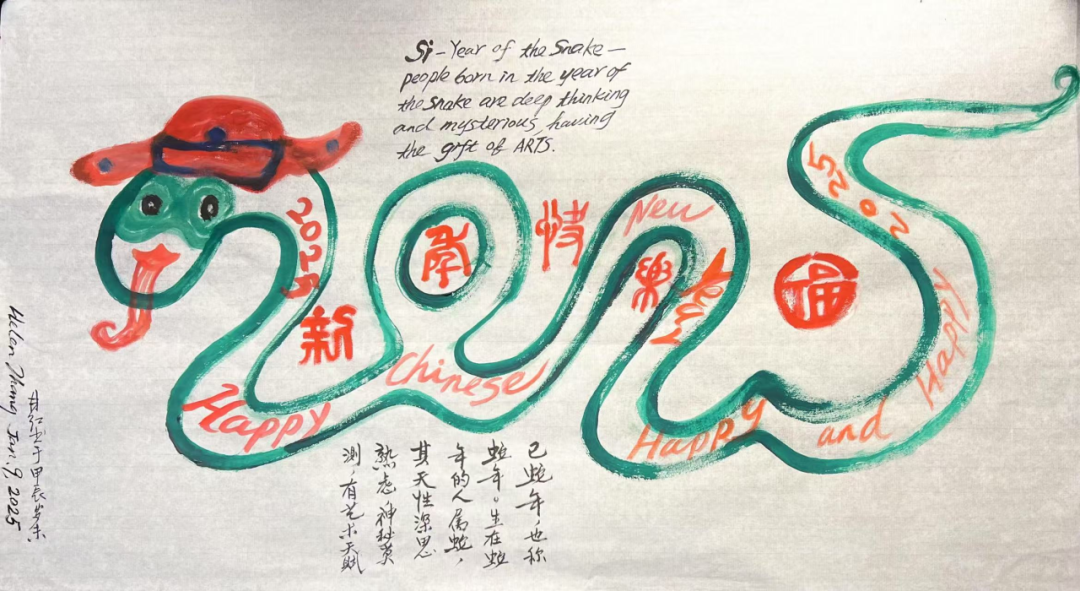 Si – Year of the Snake –
people born in the year of
the snake are deep thinking
and mysterious, having
the gift of ARTS.
2025
新
年
快
樂
福
Happy
Chinese
New
Year
Happy
and
Happy
2025
巳蛇年,也称
蛇年。生在蛇
年的人属蛇,
其天性深思
熟虑,神秘莫
测,有艺术天赋
于甲辰岁末.
Helen Jan. 9. 2025